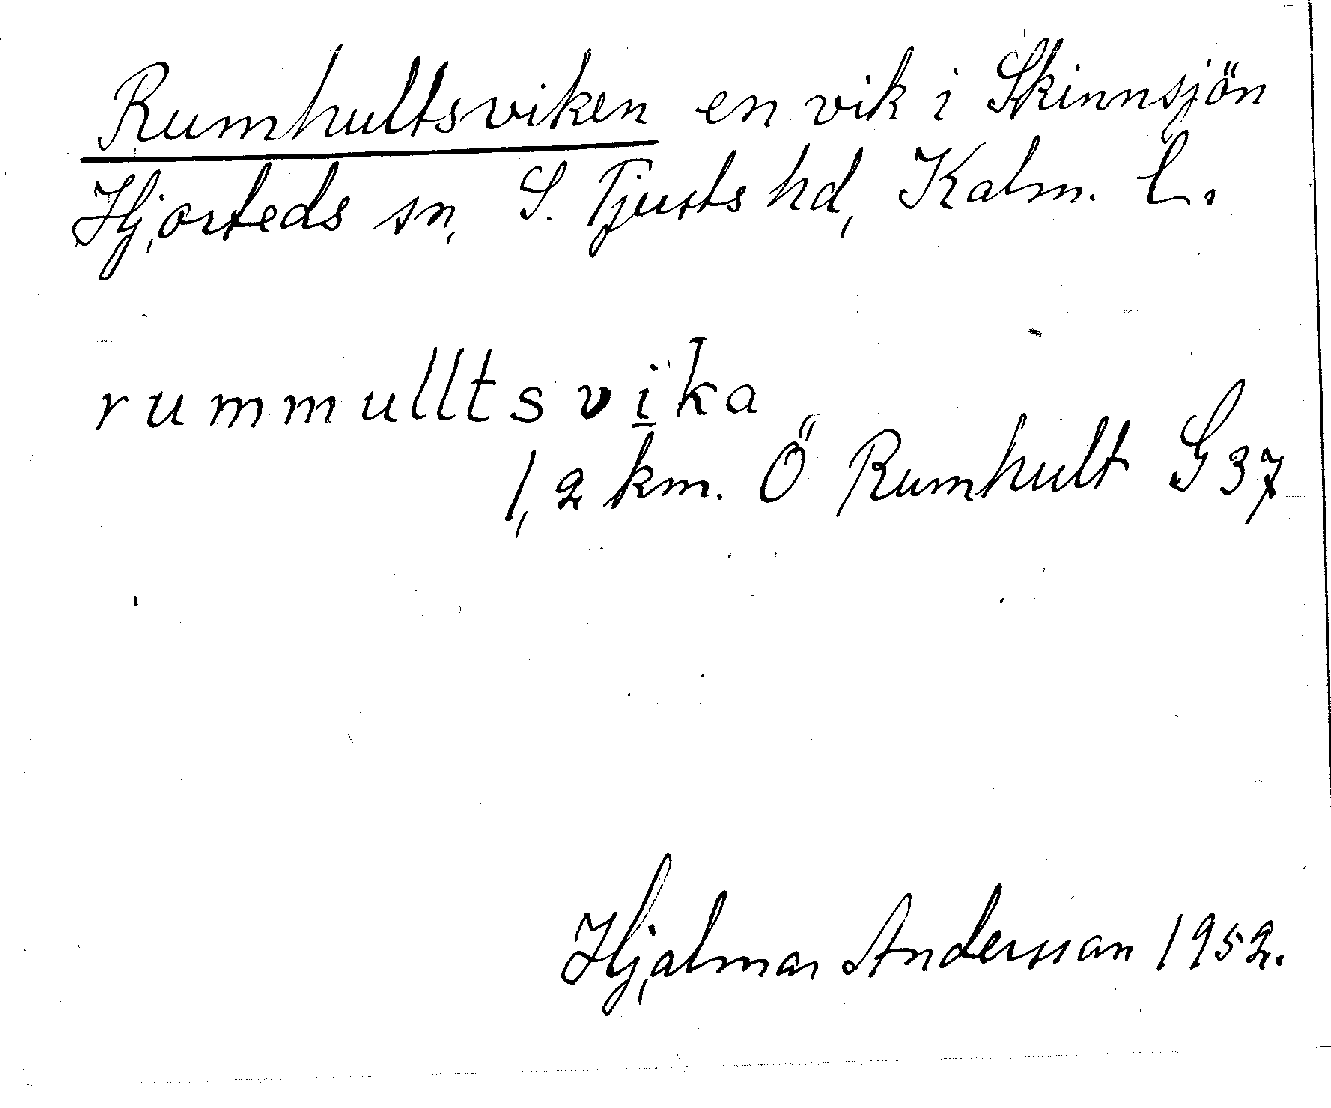 Rumhultsviken en vik i Skinnsjön
Hjorteds sn, S. Tjusts hd, Kalm. l.
rummulltsvika
1,2 km. Ö Rumhult G 37
Hjalmar Andersson 1952.